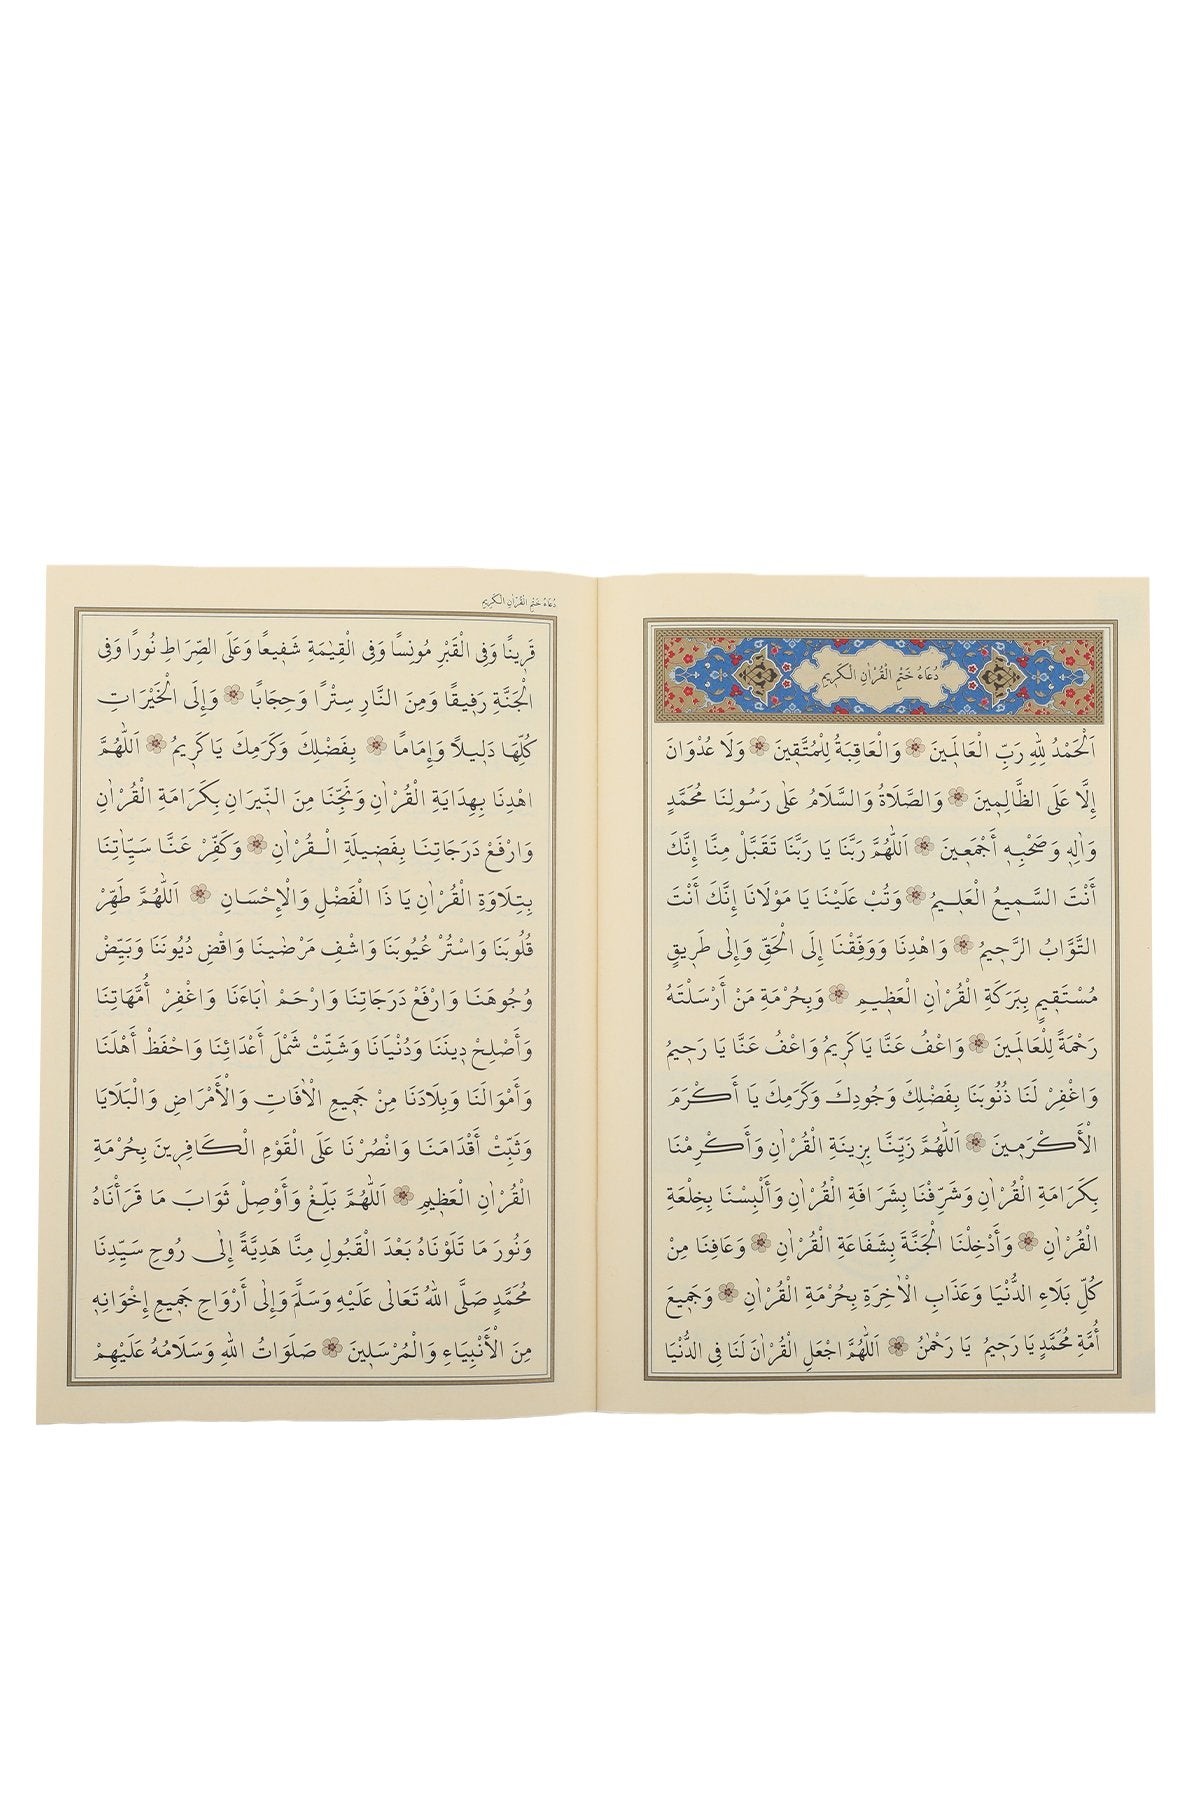 دُعَاءُ خَتْمِ الْقُرْاٰنِ الْكَر۪يمِ
اَلْحَمْدُ لِلّٰهِ رَبِّ الْعَالَم۪ينَ وَالْعَاقِبَةُ لِلْمُتَّق۪ينَ وَلَا عُدْوَانَ
إِلَّا عَلَى الظَّالِم۪ينَ وَالصَّلَاةُ وَالسَّلَامُ عَلٰى رَسُولِنَا مُحَمَّدٍ
وَاٰلِه۪ وَصَحْبِه۪ أَجْمَع۪ينَ اَللّٰهُمَّ رَبَّنَا يَا رَبَّنَا تَقَبَّلْ مِنَّا إِنَّكَ
أَنْتَ السَّم۪يعُ الْعَل۪يمُ وَتُبْ عَلَيْنَا يَا مَوْلَانَا إِنَّكَ أَنْتَ
التَّوَّابُ الرَّح۪يمُ وَاهْدِنَا وَوَفِّقْنَا إِلَى الْحَقِّ وَإِلٰى طَر۪يقٍ
مُسْتَق۪يمٍ بِبَرَكَةِ الْقُرْاٰنِ الْعَظ۪يمِ وَبِحُرْمَةِ مَنْ أَرْسَلْتَهُ
رَحْمَةً لِلْعَالَم۪ينَ وَاعْفُ عَنَّا يَا كَر۪يمُ وَاعْفُ عَنَّا يَا رَح۪يمُ
وَاغْفِرْ لَنَا ذُنُوبَنَا بِفَضْلِكَ وَجُودِكَ وَكَرَمِكَ يَا أَكْرَمَ
الْأَكْرَم۪ينَ اَللّٰهُمَّ زَيِّنَّا بِز۪ينَةِ الْقُرْاٰنِ وَأَكْرِمْنَا
بِكَرَامَةِ الْقُرْاٰنِ وَشَرِّفْنَا بِشَرَافَةِ الْقُرْاٰنِ وَأَلْبِسْنَا بِخِلْعَةِ
الْقُرْاٰنِ وَأَدْخِلْنَا الْجَنَّةَ بِشَفَاعَةِ الْقُرْاٰنِ وَعَافِنَا مِنْ
كُلِّ بَلَاءِ الدُّنْيَا وَعَذَابِ الْاٰخِرَةِ بِحُرْمَةِ الْقُرْاٰنِ وَجَم۪يعَ
أُمَّةِ مُحَمَّدٍ يَا رَح۪يمُ يَا رَحْمٰنُ اَللّٰهُمَّ اجْعَلِ الْقُرْاٰنَ لَنَا فِي الدُّنْيَا
دُعَاءُ خَتْمِ الْقُرْاٰنِ الْكَر۪يمِ
قَر۪ينًا وَفِي الْقَبْرِ مُونِسًا وَفِي الْقِيٰمَةِ شَف۪يعًا وَعَلَى الصِّرَاطِ نُورًا وَفِي
الْجَنَّةِ رَف۪يقًا وَمِنَ النَّارِ سِتْرًا وَحِجَابًا وَإِلَى الْخَيْرَاتِ
كُلِّهَا دَل۪يلًا وَإِمَامًا بِفَضْلِكَ وَكَرَمِكَ يَا كَر۪يمُ اَللّٰهُمَّ
اهْدِنَا بِهِدَايَةِ الْقُرْاٰنِ وَنَجِّنَا مِنَ النّ۪يرَانِ بِكَرَامَةِ الْقُرْاٰنِ
وَارْفَعْ دَرَجَاتِنَا بِفَض۪يلَةِ الْقُرْاٰنِ وَكَفِّرْ عَنَّا سَيِّاٰتِنَا
بِتِلَاوَةِ الْقُرْاٰنِ يَا ذَا الْفَضْلِ وَالْإِحْسَانِ اَللّٰهُمَّ طَهِّرْ
قُلُوبَنَا وَاسْتُرْ عُيُوبَنَا وَاشْفِ مَرْضٰينَا وَاقْضِ دُيُونَنَا وَبَيِّضْ
وُجُوهَنَا وَارْفَعْ دَرَجَاتِنَا وَارْحَمْ اٰبَاءَنَا وَاغْفِرْ أُمَّهَاتِنَا
وَأَصْلِحْ د۪ينَنَا وَدُنْيَانَا وَشَتِّتْ شَمْلَ أَعْدَائِنَا وَاحْفَظْ أَهْلَنَا
وَأَمْوَالَنَا وَبِلَادَنَا مِنْ جَم۪يعِ الْاٰفَاتِ وَالْأَمْرَاضِ وَالْبَلَايَا
وَثَبِّتْ أَقْدَامَنَا وَانْصُرْنَا عَلَى الْقَوْمِ الْكَافِر۪ينَ بِحُرْمَةِ
الْقُرْاٰنِ الْعَظ۪يمِ اَللّٰهُمَّ بَلِّغْ وَأَوْصِلْ ثَوَابَ مَا قَرَأْنَاهُ
وَنُورَ مَا تَلَوْنَاهُ بَعْدَ الْقَبُولِ مِنَّا هَدِيَّةً إِلٰى رُوحِ سَيِّدِنَا
مُحَمَّدٍ صَلَّى اللّٰهُ تَعَالٰى عَلَيْهِ وَسَلَّمَ وَإِلٰى أَرْوَاحِ جَم۪يعِ إِخْوَانِه۪
مِنَ الْأَنْبِيَاءِ وَالْمُرْسَل۪ينَ صَلَوَاتُ اللّٰهِ وَسَلَامُهُ عَلَيْهِمْ